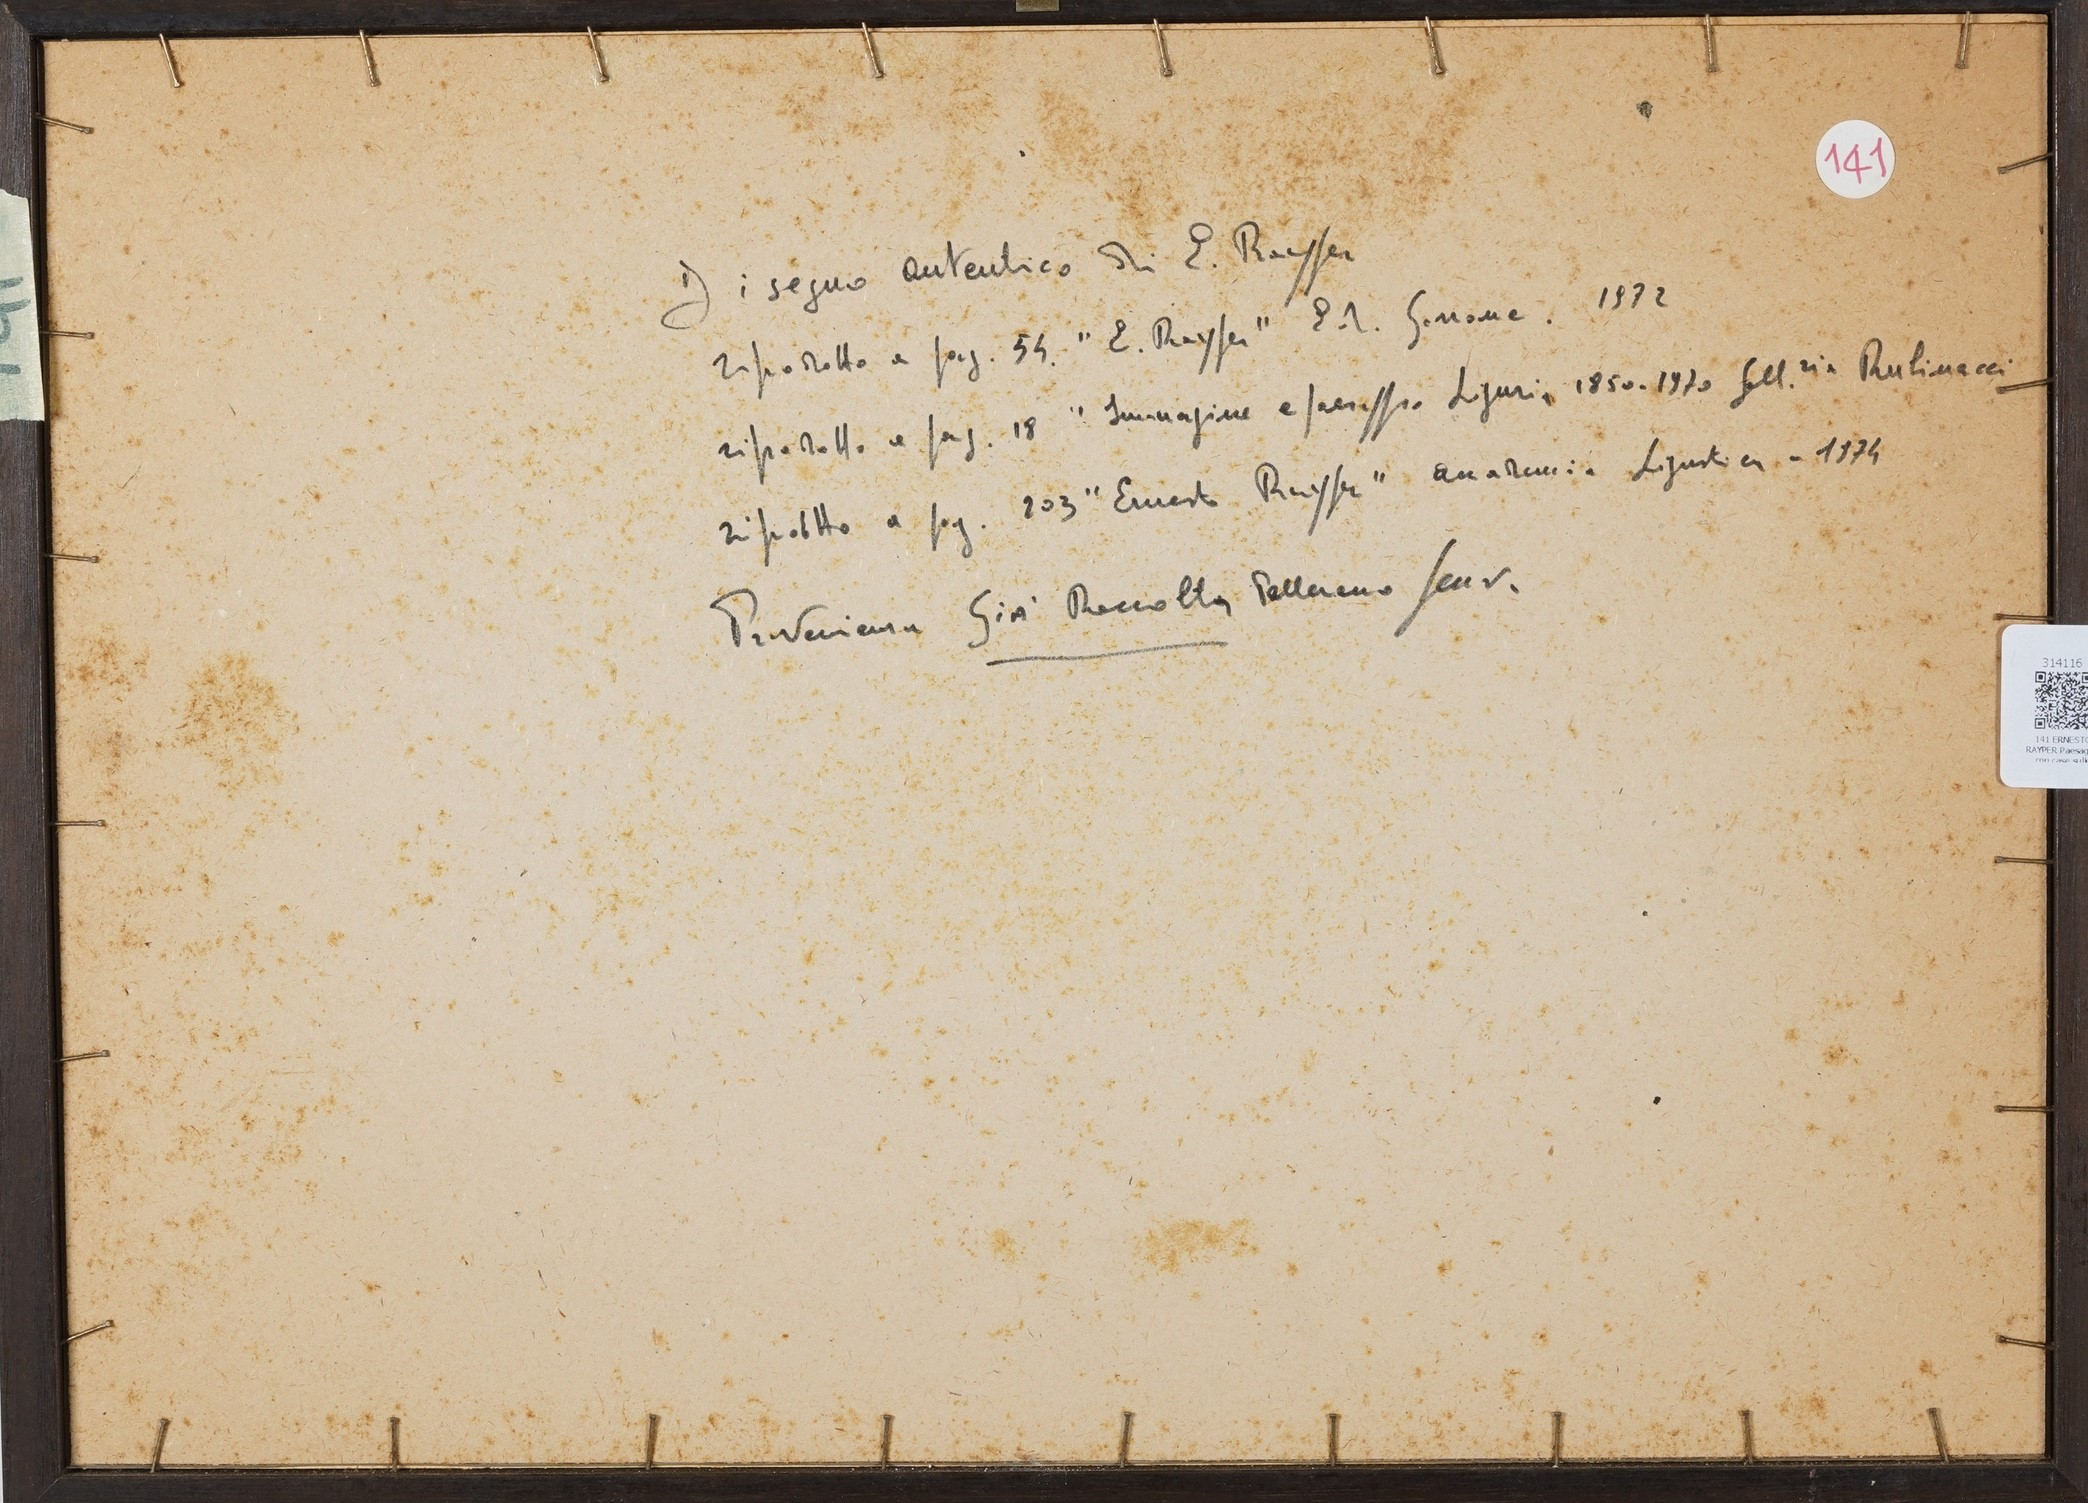 141
Disegno autentico di E. Rayper
riprodotto a pag. 54. "E. Rayper" Ed. 1972
riprodotto a pag. 18 "Immagine e paesaggio Liguria 1850-1970 Gall.ria Rubinacci
riprodotto a pag. 203 "Ernesto Rayper" Accademia Ligustica - 1974
Provenienza Già Raccolta Pellerano
314116
141 ERNESTO
RAYPER Paesag
con case sulle